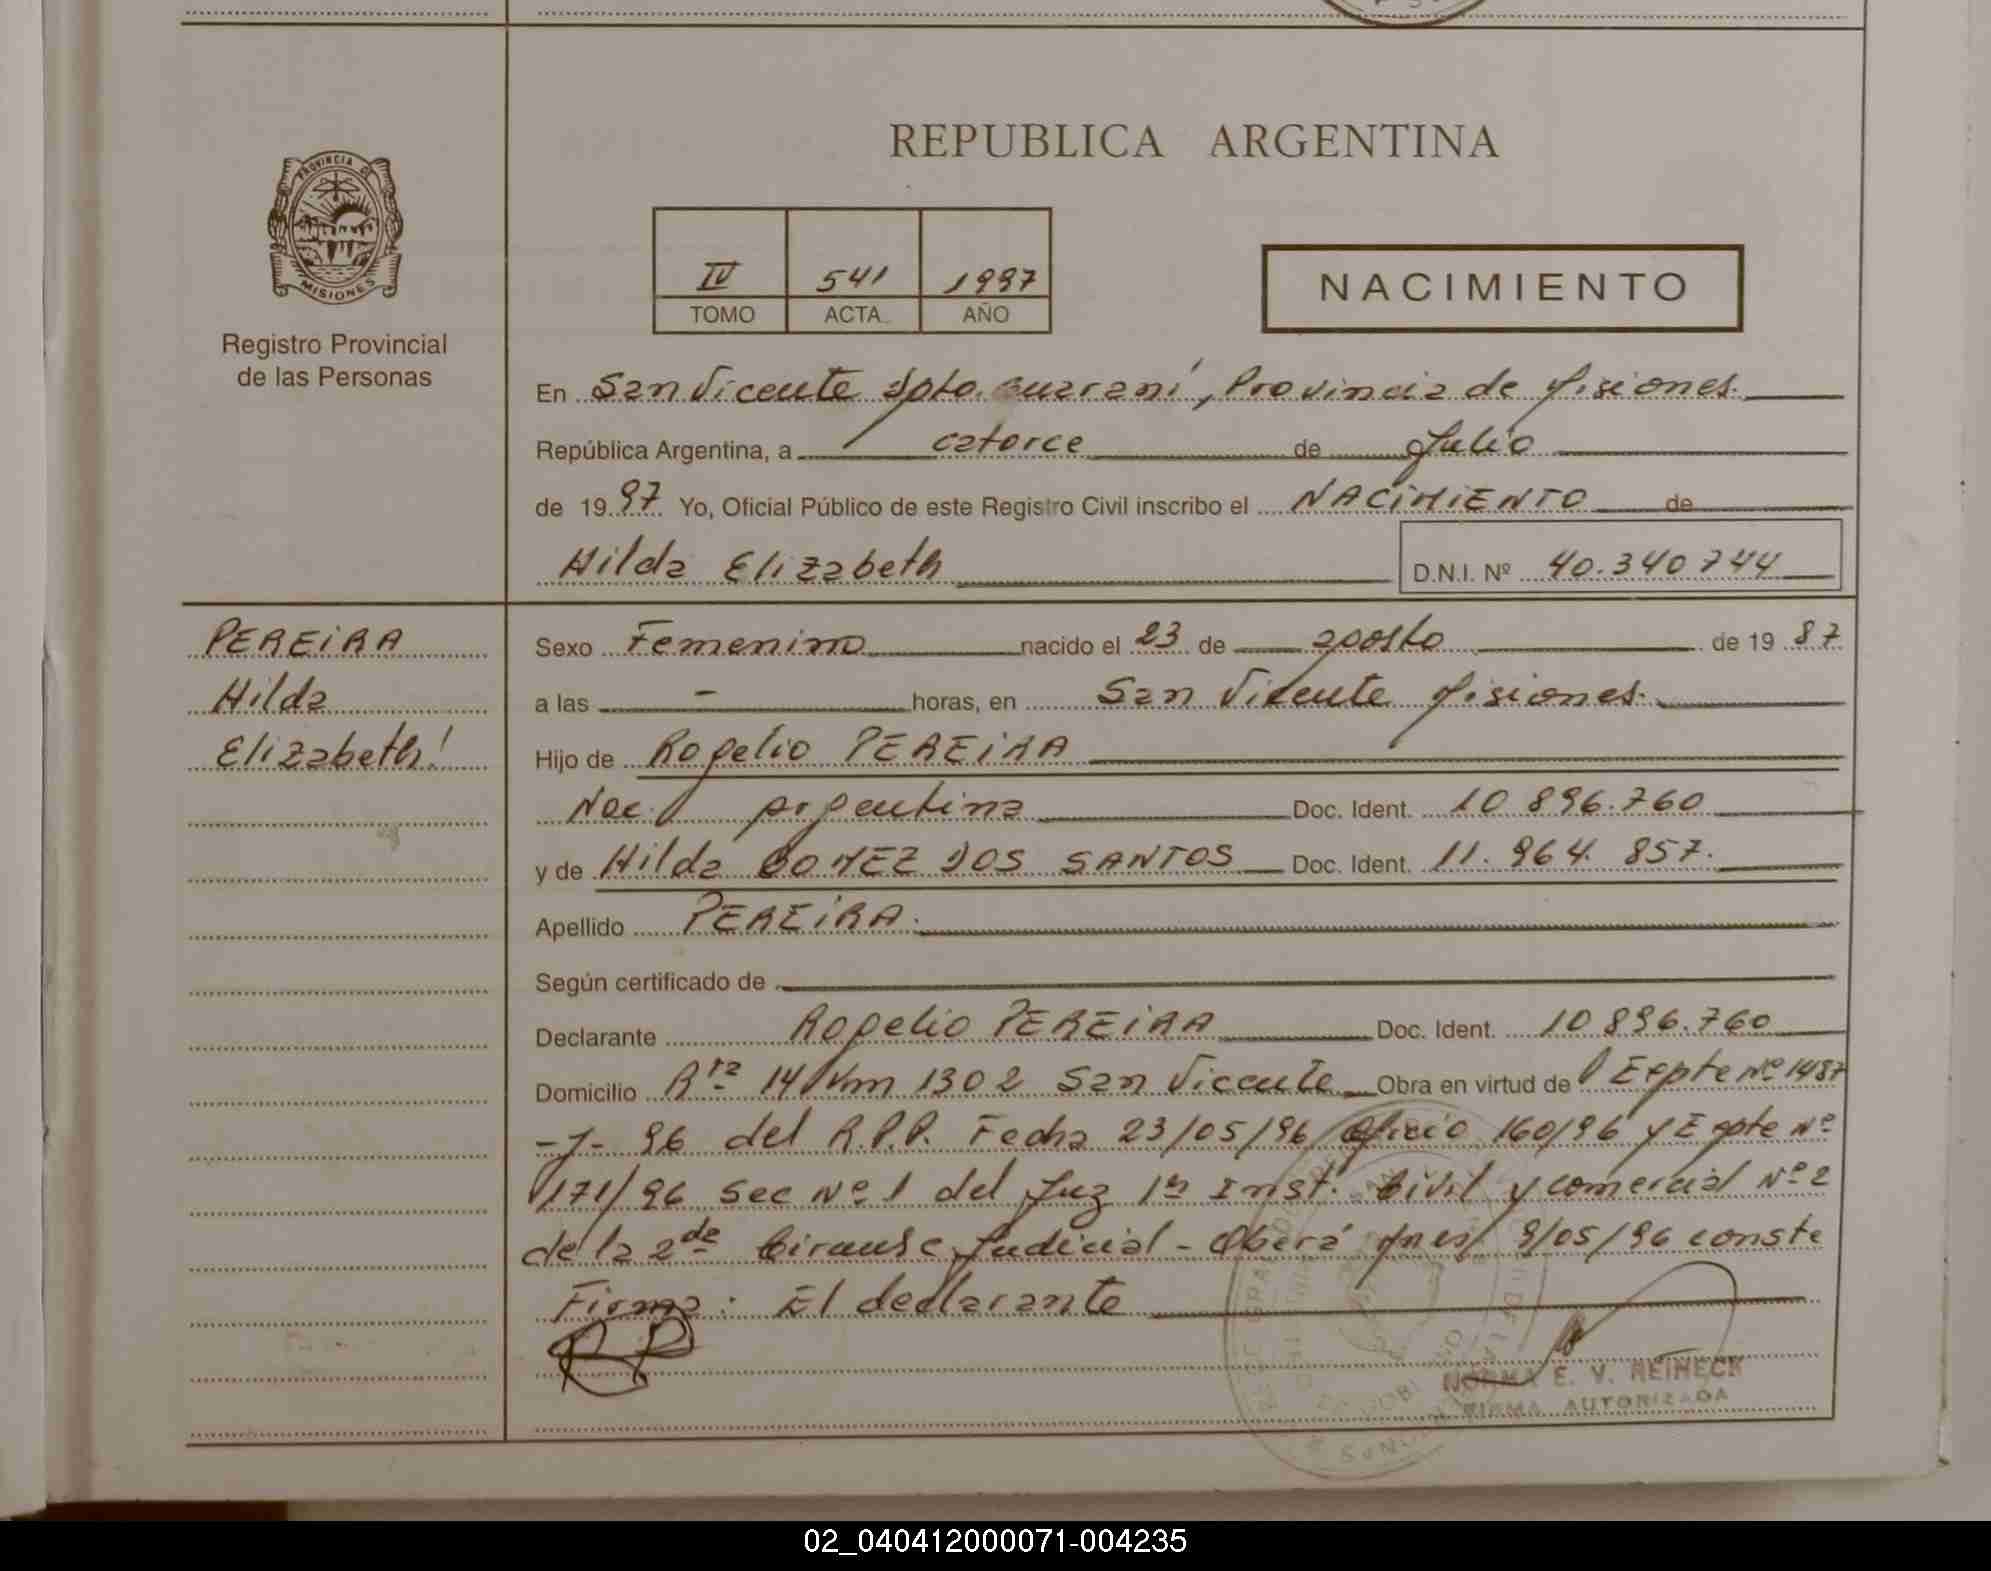 REPUBLICA ARGENTINA
PROVINCIA DE
MISIONES
Registro Provincial
de las Personas
IV 541 1997
TOMO ACTA AÑO
NACIMIENTO
En San Vicente Dpto. Guaraní, Provincia de Misiones.
República Argentina, a catorce de Julio
de 1997 Yo, Oficial Público de este Registro Civil inscribo el NACIMIENTO de
Hilda Elizabeth D.N.I. Nº 40.340744
PEREIRA
Hilda
Elizabeth
Sexo Femenino nacido el 23 de agosto de 19 87
a las - horas, en San Vicente Misiones.
Hijo de Rogelio PEREIRA
Nac. argentina Doc. Ident. 10 896.760
y de Hilda GOMEZ DOS SANTOS Doc. Ident. 11. 964. 857.
Apellido PEREIRA.
Según certificado de
Declarante Rogelio PEREIRA Doc. Ident. 10 896.760
Domicilio Rta 14 Km 1302 San Vicente Obra en virtud de Expte Nº 1487
96 del R.P.P. Fecha 23/05/96 Oficio 160/96 y Expte Nº
171/96 Sec Nº 1 del Juz 1ª Inst. Civil y comercial Nº 2
de la 2da Circunsc Judicial - Oberá Mnes 9/05/96 conste
Firma: El declarante
RP
NORMA E. V. REINECK
FIRMA AUTORIZADA
02_040412000071-004235